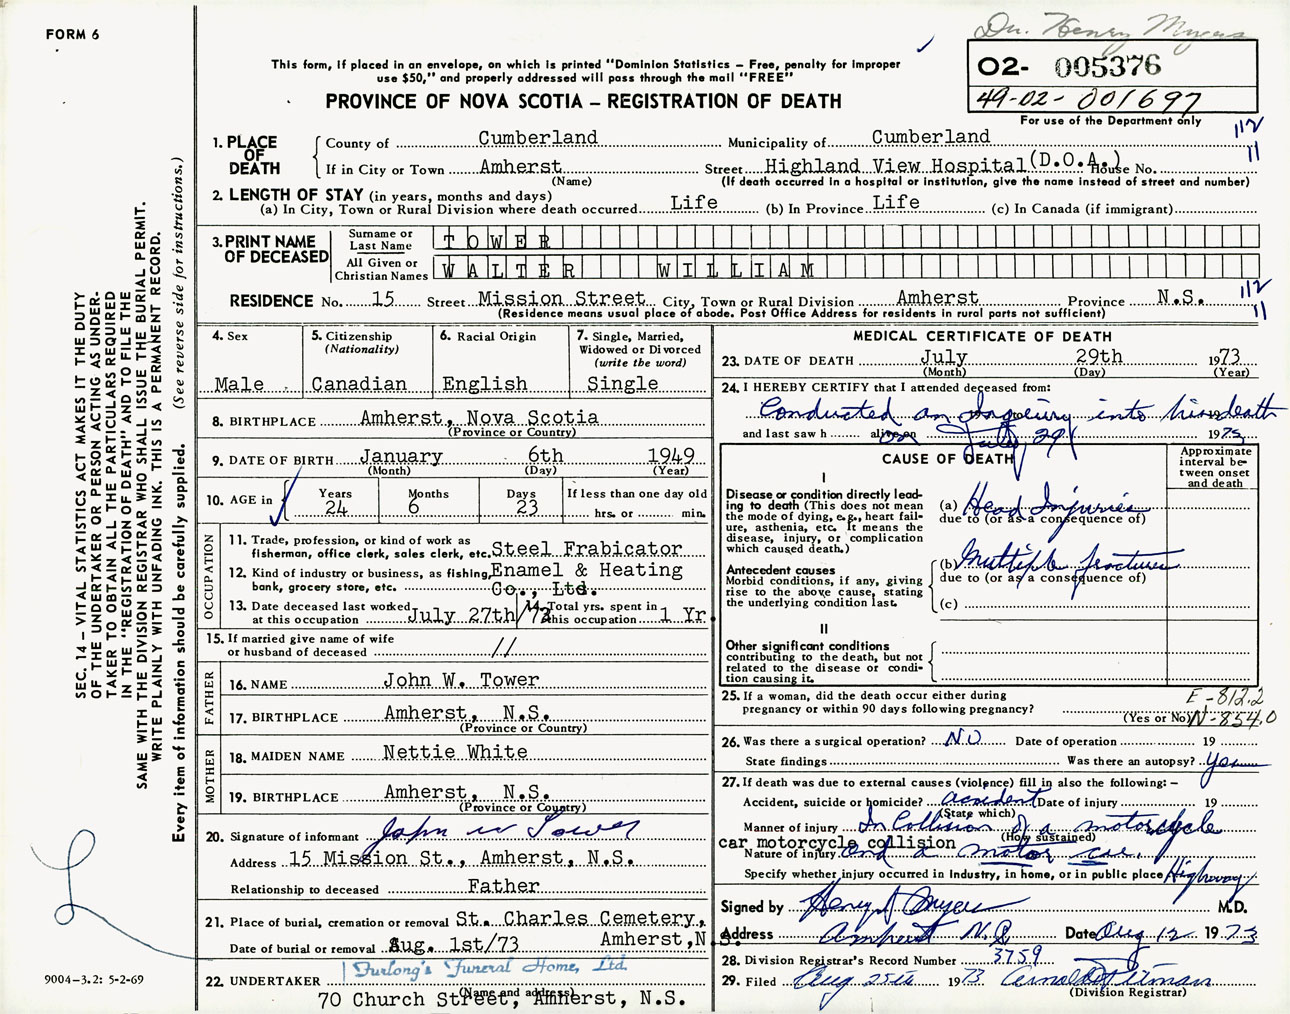 FORM 6
Dr. Henry Myers
This form, if placed in an envelope, on which is printed "Dominion Statistics – Free, penalty for improper
use $50," and properly addressed will pass through the mail "FREE"
PROVINCE OF NOVA SCOTIA – REGISTRATION OF DEATH
02- 005376
49-02-001697
For use of the Department only
112
11
1. PLACE OF DEATH
County of Cumberland Municipality of Cumberland
If in City or Town Amherst Street Highland View Hospital (D.O.A.) House No.
(Name) (If death occurred in a hospital or institution, give the name instead of street and number)
2. LENGTH OF STAY (in years, months and days)
(a) In City, Town or Rural Division where death occurred Life (b) In Province Life (c) In Canada (if immigrant)
3. PRINT NAME OF DECEASED
Surname or Last Name TOWER
All Given or Christian Names WALTER WILLIAM
RESIDENCE No. 15 Street Mission Street City, Town or Rural Division Amherst Province N.S.
(Residence means usual place of abode. Post Office Address for residents in rural parts not sufficient)
112
11
4. Sex
Male
5. Citizenship
(Nationality)
Canadian
6. Racial Origin
English
7. Single, Married,
Widowed or Divorced
(write the word)
Single
8. BIRTHPLACE Amherst, Nova Scotia
(Province or Country)
9. DATE OF BIRTH January 6th 1949
(Month) (Day) (Year)
10. AGE in
Years Months Days If less than one day old
24 6 23 hrs. or min.
OCCUPATION
11. Trade, profession, or kind of work as
fisherman, office clerk, sales clerk, etc. Steel Frabicator
12. Kind of industry or business, as fishing, Enamel & Heating
bank, grocery store, etc. Co., Ltd.
13. Date deceased last worked
at this occupation July 27th/73
14. Total yrs. spent in
this occupation 1 Yr.
15. If married give name of wife
or husband of deceased //
FATHER
16. NAME John W. Tower
17. BIRTHPLACE Amherst, N.S.
(Province or Country)
MOTHER
18. MAIDEN NAME Nettie White
19. BIRTHPLACE Amherst, N.S.
(Province or Country)
20. Signature of informant John W Tower
Address 15 Mission St., Amherst, N.S.
Relationship to deceased Father
21. Place of burial, cremation or removal St. Charles Cemetery,
Date of burial or removal Aug. 1st/73 Amherst, N.S.
22. UNDERTAKER Furlong's Funeral Home, Ltd.
(Name and address)
70 Church Street, Amherst, N.S.
MEDICAL CERTIFICATE OF DEATH
23. DATE OF DEATH July 29th 1973
(Month) (Day) (Year)
24. I HEREBY CERTIFY that I attended deceased from:
Conducted an Inquiry into his death 19
and last saw h alive on on July 29 1973
CAUSE OF DEATH
Approximate
interval be-
tween onset
and death
I
Disease or condition directly lead-
ing to death (This does not mean
the mode of dying, e.g., heart fail-
ure, asthenia, etc. It means the
disease, injury, or complication
which caused death.)
(a) Head Injuries
due to (or as a consequence of)
Antecedent causes
Morbid conditions, if any, giving
rise to the above cause, stating
the underlying condition last.
(b) Multiple fractures
due to (or as a consequence of)
(c)
II
Other significant conditions
contributing to the death, but not
related to the disease or condi-
tion causing it.
25. If a woman, did the death occur either during
pregnancy or within 90 days following pregnancy?
(Yes or No)
E-812.2
N-854.0
26. Was there a surgical operation? NO Date of operation 19
State findings Was there an autopsy? Yes
27. If death was due to external causes (violence) fill in also the following:–
Accident, suicide or homicide? accident Date of injury 19
(State which)
Manner of injury In Collision of a motorcycle
(How sustained)
car motorcycle collision
Nature of injury and a motor car.
Specify whether injury occurred in industry, in home, or in public place Highway
Signed by Henry Myers M.D.
Address Amherst N.S. Date Aug 12 1973
28. Division Registrar's Record Number 3759
29. Filed Aug 25th 1973
(Division Registrar)
SEC. 14 – VITAL STATISTICS ACT MAKES IT THE DUTY
OF THE UNDERTAKER OR PERSON ACTING AS UNDER-
TAKER TO OBTAIN ALL THE PARTICULARS REQUIRED
IN THE "REGISTRATION OF DEATH" AND TO FILE THE
SAME WITH THE DIVISION REGISTRAR WHO SHALL ISSUE THE BURIAL PERMIT.
WRITE PLAINLY WITH UNFADING INK. THIS IS A PERMANENT RECORD.
Every item of information should be carefully supplied. (See reverse side for instructions.)
9004–3.2: 5-2-69